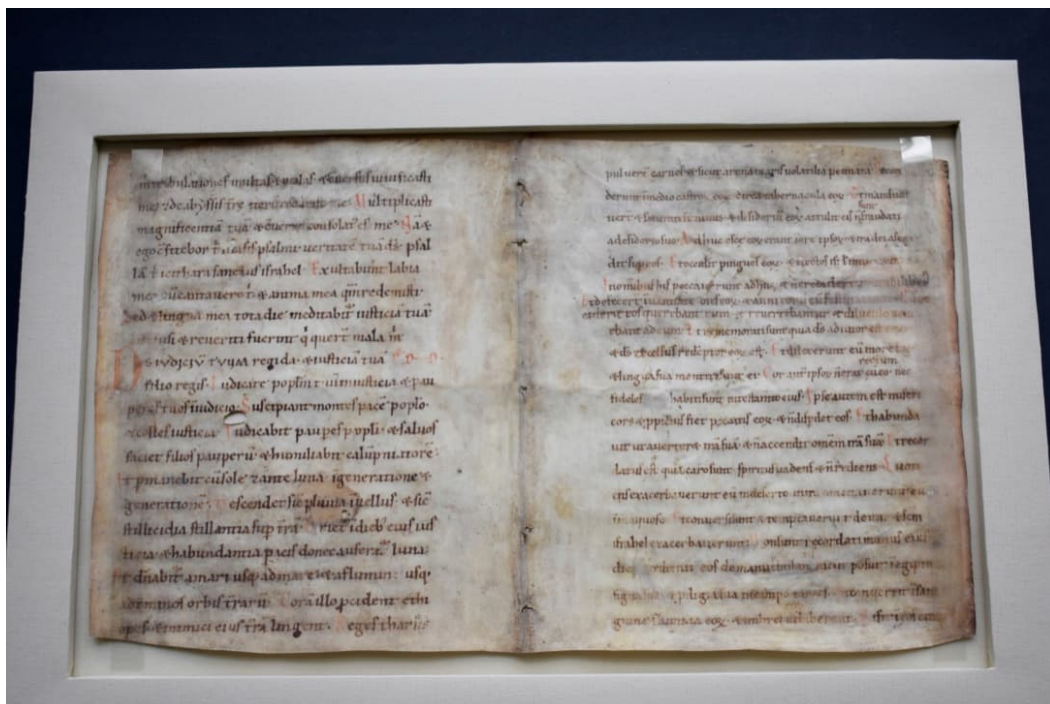 tribulationes multas & malas & conversus vivificasti
me & de abyssis t̄re iterū reduxisti me Multiplicasti
magnificentiā tuā & conversus consolat' es me Nā &
ego c̄fitebor t' in vasis psalmi veritatē tuā d̄s psal
lā t' in cithara sanctus israhel Exultabunt labia
mea cū cantavero t' & anima mea quā redemisti
Sed & lingua mea tota die meditabit' iusticiā tuā
fusi & reveriti fuerint q' querūt mala m'
DS iudiciū tuum regi da & iusticiā tuā
filio regis Iudicare poplm tuū in iusticia & pau
peres tuos in iudicio Suscipiant montes pacē poplo
& colles iusticiā Iudicabit pauperes popli & salvos
faciet filios pauperū & humiliabit calūpniatorē
Et pmanebit cū sole & ante lunā igeneratione &
generationē Descendet sic pluvia in vellus & sic
stillicidia stillantia sup t̄rā Oriet' idieb; eius ius
ticia & habundantia pacis donec aufera't' luna
Et dn̄abit' a mari usq; ad mare & a flumine usq;
ad t̄minos orbis t̄rarū Corā illo pcident ethi
opes & inimici eius t̄rā lingent Reges tharsis
pulverē carnes & sicut arenā maris volatilia pennata & ceci
derunt in medio castrorū eoꝝ circa tabernacula eoꝝ Et manduca
verunt & saturati s̄ nimis & desideriū eoꝝ attulit eis n̄ s̄ fraudati
a desiderio suo Adhuc esce eoꝝ erant in ore ipsoꝝ & ira dei ascen
dit sup eos Et occidit pingues eoꝝ & electos isrl impedivit
In omnibus his peccaverunt adhuc & n̄ crediderunt
Et defecerunt in vanitate dies eoꝝ & anni eoꝝ cū festinatione
occideret eos querebant eum & revertebantur & diluculo ve
niebant ad eum Et rememorati sunt quia d̄s adiutor est eoꝝ
& d̄s excelsus redēptor eoꝝ est Et dilexerunt eū in ore suo
& lingua sua mentiti sunt ei Cor aut' ipsoꝝ n̄ erat rectū cū eo nec
fideles habiti sunt in testamento eius Ipse autem est miseri
cors & ppicius fiet peccatis eoꝝ & n̄ disperdet eos Et habunda
vit ut averteret irā suā & n̄ accendit omnem irā suā Et recor
datus est quia caro sunt spiritus vadens & n̄ rediens Quoti
ens exacerbaverunt eū in deserto
inaquoso Et conversi sunt & temptaverunt deum & scm
israhel exacerbaverunt Non sunt recordati manus eius
die qua redemit eos de manu tribulantis Sicut posuit in egypto
signa sua & prodigia sua in campo taneos Et convertit in san
guinē flumina eoꝝ & imbres eoꝝ ne biberent Misit in eos